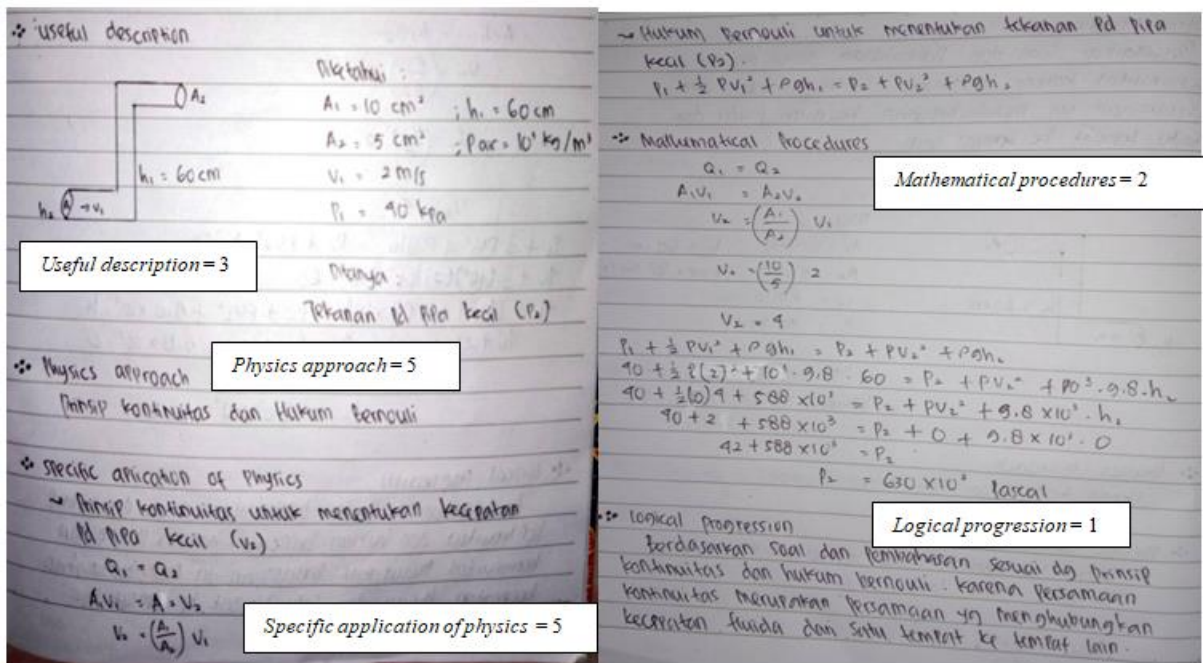 useful description
A₂
h₁ = 60 cm
h₂ A → v₁
Diketahui :
A₁ = 10 cm² ; h₁ = 60 cm
A₂ = 5 cm² ; ρair = 10³ kg/m³
V₁ = 2 m/s
P₁ = 40 kpa
Useful description = 3
Ditanya
Tekanan Pd pipa kecil (P₂)
Physics approach = 5
Physics approach
Prinsip kontinuitas dan Hukum Bernouli
specific aplication of Physics
~ Prinsip kontinuitas untuk menentukan kecepatan
Pd pipa kecil (v₂)
Q₁ = Q₂
A₁V₁ = A₂V₂
V₂ = (A₁/A₂) V₁
Specific application of physics = 5
~ Hukum Bernouli untuk menentukan tekanan Pd pipa
kecil (P₂).
P₁ + ½ ρv₁² + ρgh₁ = P₂ + ρv₂² + ρgh₂
Mathematical Procedures
Mathematical procedures = 2
Q₁ = Q₂
A₁V₁ = A₂V₂
V₂ = (A₁/A₂) V₁
V₂ = (10/5) 2
V₂ = 4
P₁ + ½ ρv₁² + ρgh₁ = P₂ + ρv₂² + ρgh₂
= P₂ + ρv₂² + 9.8 × 10³ . h₂
40 + 2 + 588 × 10³ = P₂ + 0 + 9.8 × 10³ . 0
42 + 588 × 10³ = P₂
P₂ = 630 × 10³ Pascal
Logical progression
Logical progression = 1
Berdasarkan soal dan pembahasan sesuai dg prinsip
kontinuitas dan hukum bernouli. karena persamaan
kontinuitas merupakan persamaan yg menghubungkan
kecepatan fluida dari satu tempat ke tempat lain.